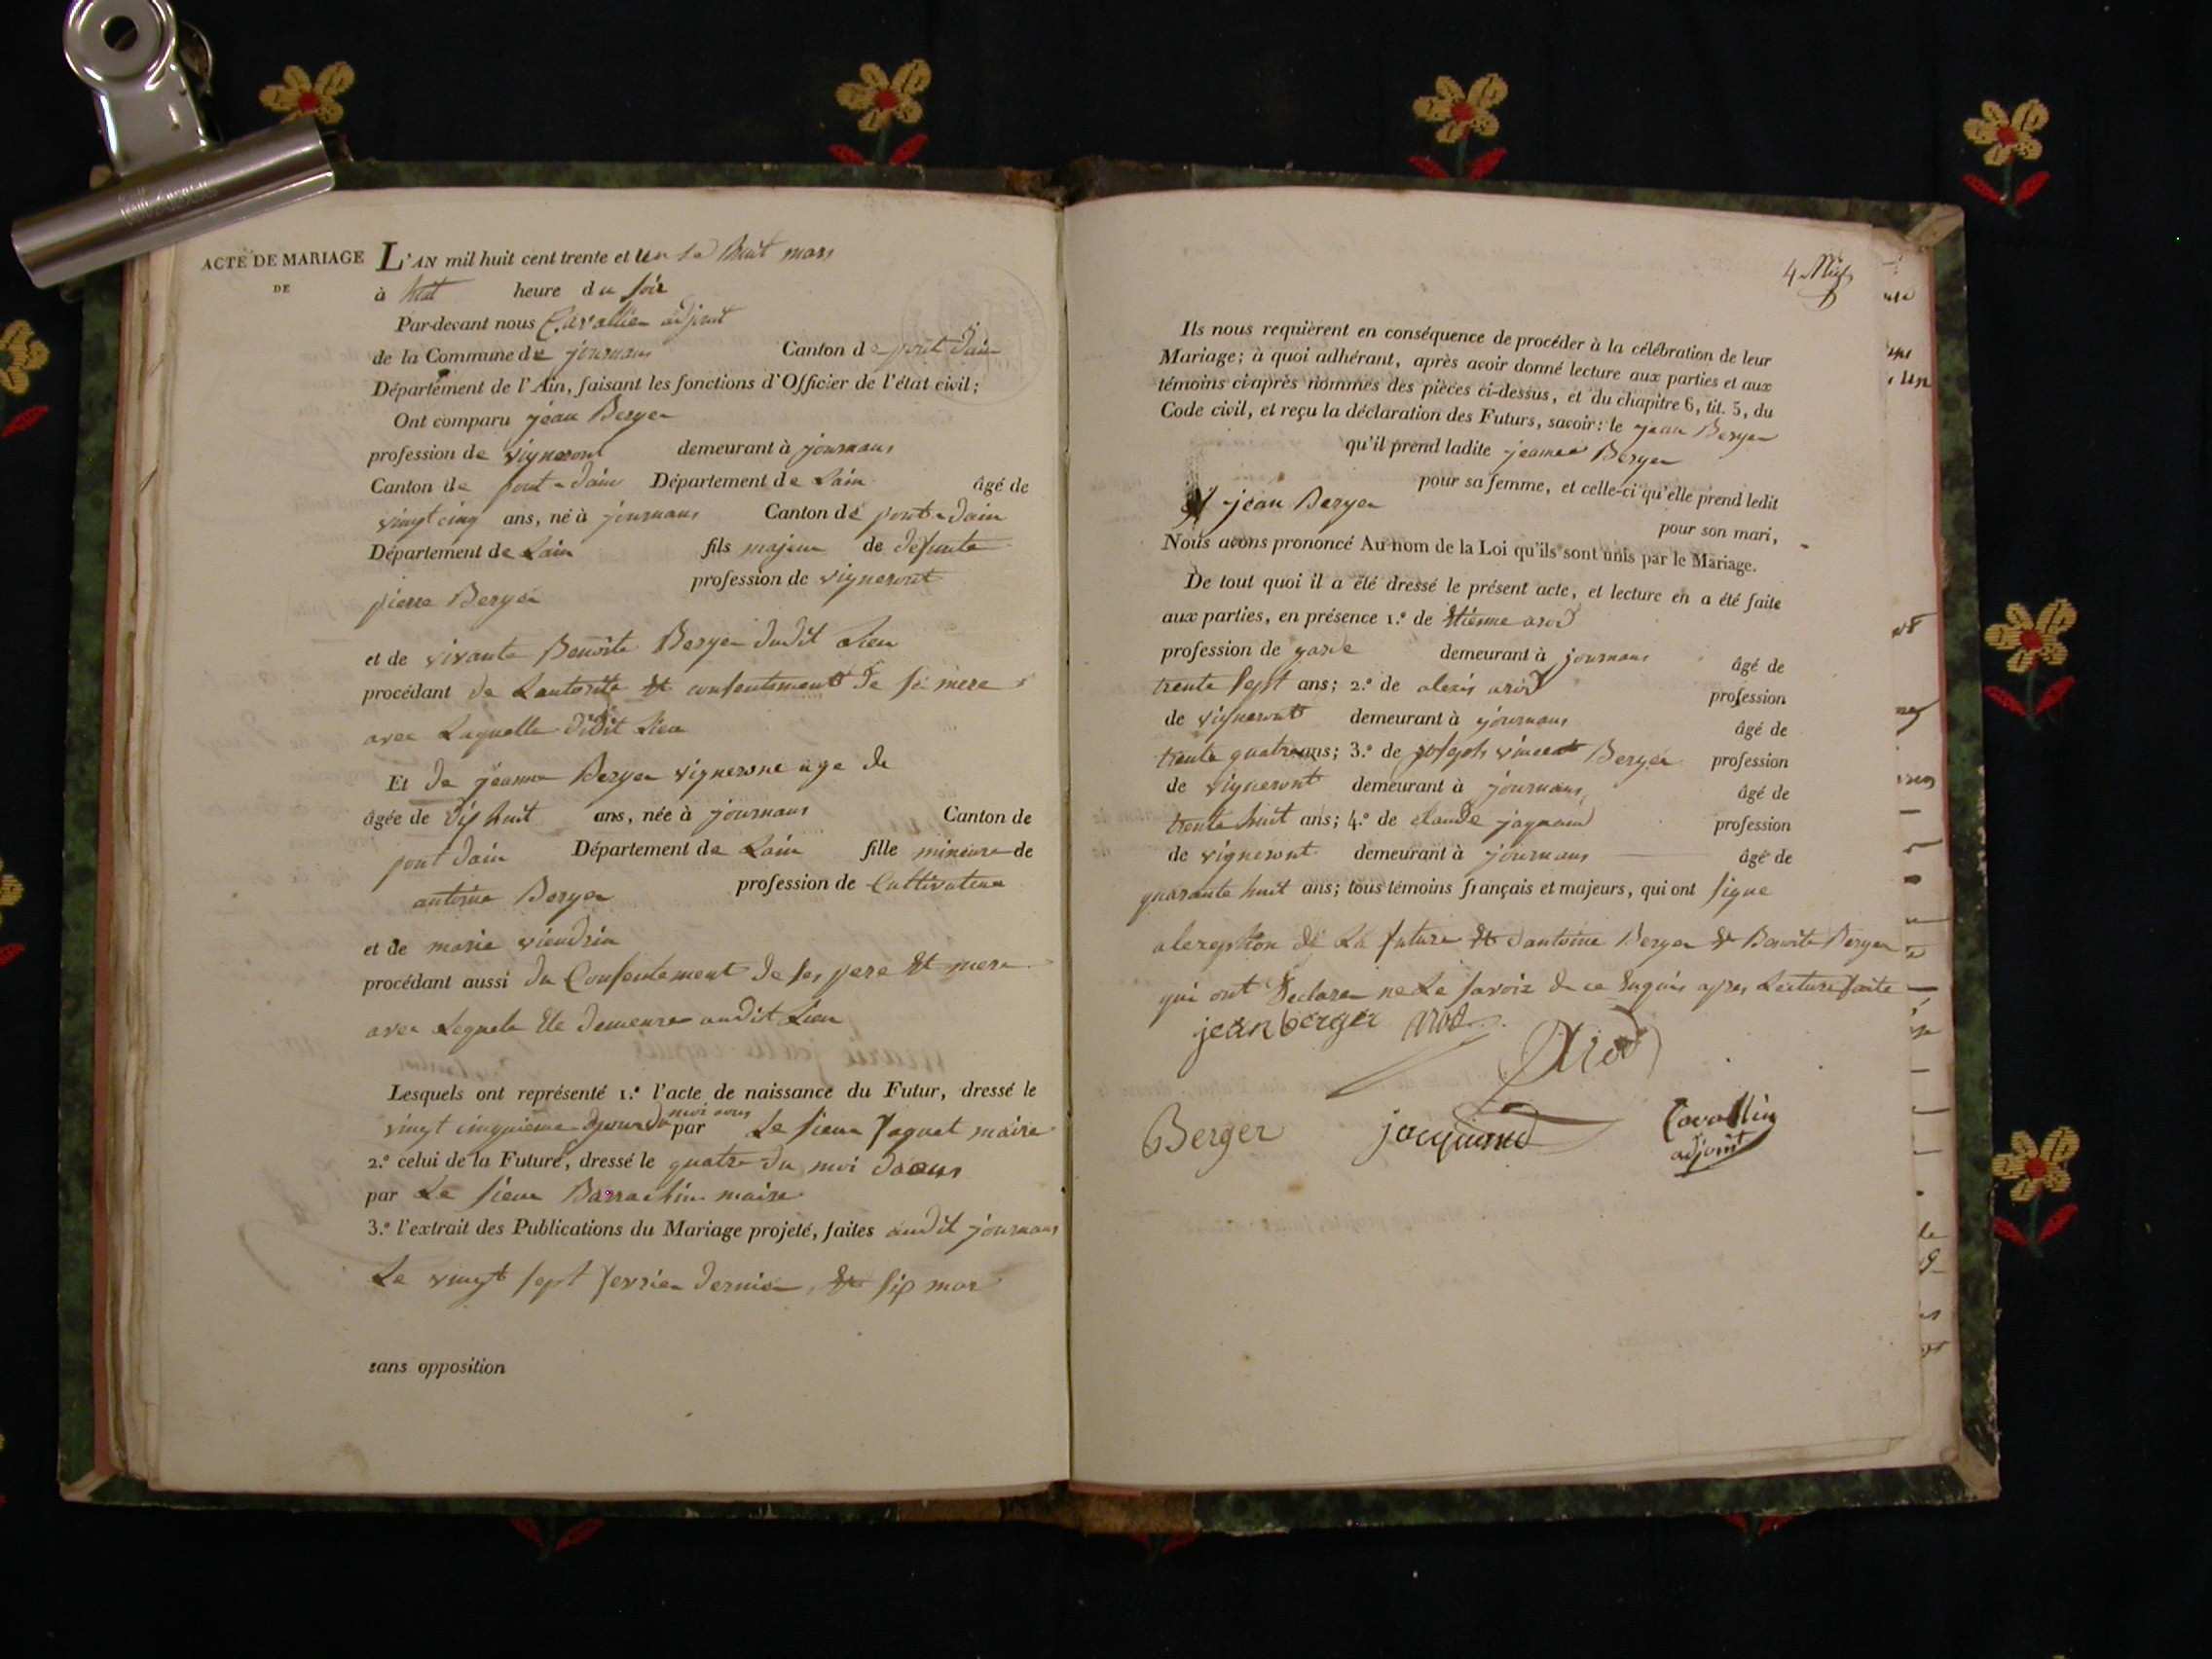 ACTE DE MARIAGE
DE
L'AN mil huit cent trente et un le huit mars
à huit heure du soir
Par-devant nous Cavallin adjoint
de la Commune de journans Canton de pont dain
Département de l'Ain, faisant les fonctions d'Officier de l'état civil;
Ont comparu jean Berger
profession de vigneront demeurant à journans
Canton de pont-dain Département de Lain âgé de
vingt cinq ans, né à journans Canton de pont-dain
Département de Lain fils majeur de defunte
pierre Berger profession de vigneront
et de vivante Benoite Berger dudit Lieu
procédant de Lautorite Et consentement de sa mere
avec Laquelle didit Lieu
Et de jeanne Berger vigneronne age de
âgée de dix huit ans, née à journans Canton de
pont dain Département de Lain fille mineure de
antoine Berger profession de Cultivateur
et de marie viendrin
procédant aussi du Consentement de ses pere Et mere
avec Lequels Ele demeure audit Lieu
Lesquels ont représenté 1.º l'acte de naissance du Futur, dressé le
vingt cinquieme jour du moi par Le sieur Paquet maire
2.º celui de la Future, dressé le quatre du moi daous
par Le sieur Barrachin maire
3.º l'extrait des Publications du Mariage projeté, faites audit journans
Le vingt sept fevrier dernier, Et six mar
sans opposition
4
Ils nous requièrent en conséquence de procéder à la célébration de leur
Mariage; à quoi adhérant, après avoir donné lecture aux parties et aux
témoins ci-après nommés des pièces ci-dessus, et du chapitre 6, tit. 5, du
Code civil, et reçu la déclaration des Futurs, savoir: le jean Berger
qu'il prend ladite jeanne Berger
pour sa femme, et celle-ci qu'elle prend ledit
jean Berger pour son mari,
Nous avons prononcé Au nom de la Loi qu'ils sont unis par le Mariage.
De tout quoi il a été dressé le présent acte, et lecture en a été faite
aux parties, en présence 1.º de Etienne arod
profession de garde demeurant à journans âgé de
trente sept ans; 2.º de alexis arod profession
de vigneront demeurant à journans âgé de
trente quatre ans; 3.º de joseph vincent Berger profession
de vigneront demeurant à journans, âgé de
trente huit ans; 4.º de claude jaquand profession
de vigneront demeurant à journans âgé de
quarante huit ans; tous témoins français et majeurs, qui ont signe
alexeption de La future Et dantoine Berger & Benoite Berger
qui ont Declarer ne Le savoir de ce Enquis apres Lecture faite
jean berger arod
Arod
Berger jacquand Cavallin
adjoint